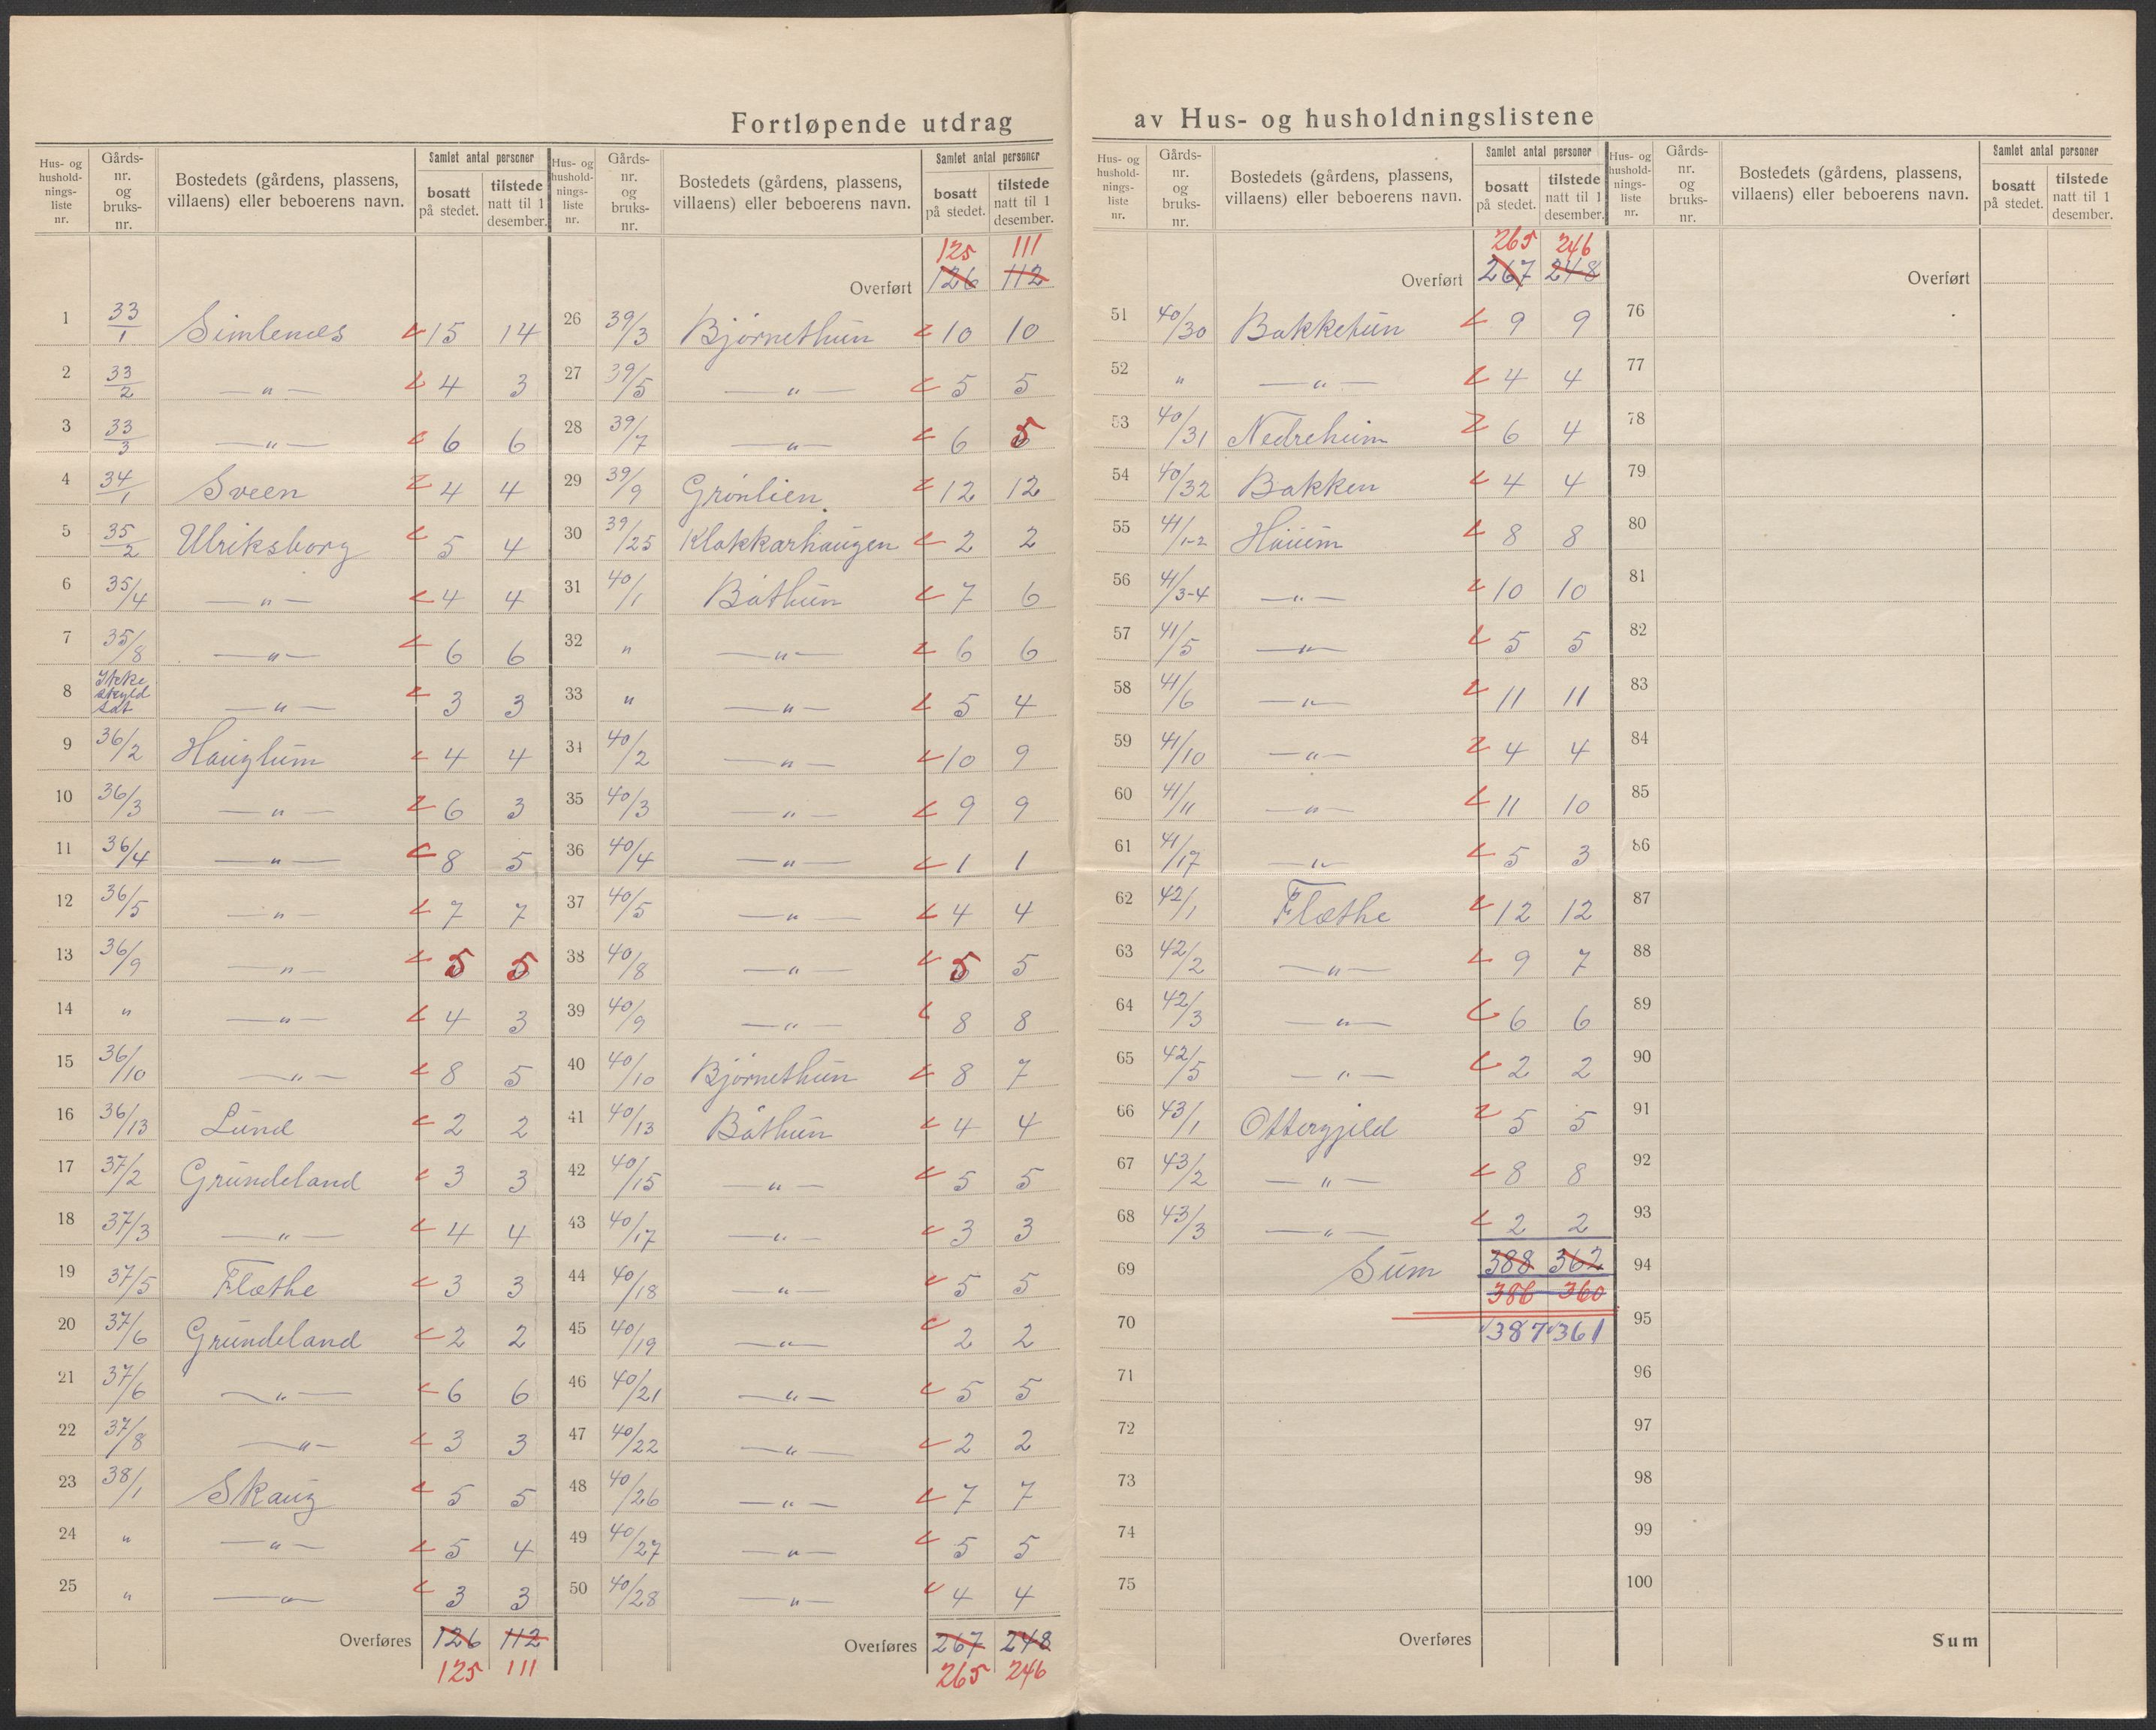 Fortløpende utdrag av Hus- og husholdningslistene
Hus- og hushold-nings-liste nr. Gårds-nr. og bruks-nr. Bostedets (gårdens, plassens, villaens) eller beboerens navn. Samlet antal personer bosatt på stedet. tilstede natt til 1 desember.
1 33/1 Simlenes 15 14
2 33/2 —"— 4 3
3 33/3 —"— 6 6
4 34/1 Sveen 4 4
5 35/2 Ulriksborg 5 4
6 35/4 —"— 4 4
7 35/8 —"— 6 6
8 Ikke skyld sat —"— 3 3
9 36/2 Hauglum 4 4
10 36/3 —"— 6 3
11 36/4 —"— 8 5
12 36/5 —"— 7 7
13 36/9 —"— 5 5
14 " —"— 4 3
15 36/10 —"— 8 5
16 36/13 Lund 2 2
17 37/2 Grundeland 3 3
18 37/3 —"— 4 4
19 37/5 Flæthe 3 3
20 37/6 Grundeland 2 2
21 37/6 —"— 6 6
22 37/8 —"— 3 3
23 38/1 Skaug 5 5
24 " —"— 5 4
25 " —"— 3 3
Overføres 126 112
125 111
Hus- og hushold-nings-liste nr. Gårds-nr. og bruks-nr. Bostedets (gårdens, plassens, villaens) eller beboerens navn. Samlet antal personer bosatt på stedet. tilstede natt til 1 desember.
125 111
Overført 126 112
26 39/3 Bjørnethun 10 10
27 39/5 —"— 5 5
28 39/7 —"— 6 5
29 39/9 Grønlien 12 12
30 39/25 Klokkarhaugen 2 2
31 40/1 Båthun 7 6
32 " —"— 6 6
33 " —"— 5 4
34 40/2 —"— 10 9
35 40/3 —"— 9 9
36 40/4 —"— 1 1
37 40/5 —"— 4 4
38 40/8 —"— 5 5
39 40/9 —"— 8 8
40 40/10 Bjørnethun 8 7
41 40/13 Båthun 4 4
42 40/15 —"— 5 5
43 40/17 —"— 3 3
44 40/18 —"— 5 5
45 40/19 —"— 2 2
46 40/21 —"— 5 5
47 40/22 —"— 2 2
48 40/26 —"— 7 7
49 40/27 —"— 5 5
50 40/28 —"— 4 4
Overføres 267 248
265 246
Hus- og hushold-nings-liste nr. Gårds-nr. og bruks-nr. Bostedets (gårdens, plassens, villaens) eller beboerens navn. Samlet antal personer bosatt på stedet. tilstede natt til 1 desember.
265 246
Overført 267 248
51 40/30 Bakketun 9 9
52 " —"— 4 4
53 40/31 Nedreheim 6 4
54 40/32 Bakken 4 4
55 41/1-2 Hauum 8 8
56 41/3-4 —"— 10 10
57 41/5 —"— 5 5
58 41/6 —"— 11 11
59 41/10 —"— 4 4
60 41/11 —"— 11 10
61 41/17 —"— 5 3
62 42/1 Flæthe 12 12
63 42/2 —"— 9 7
64 42/3 —"— 6 6
65 42/5 —"— 2 2
66 43/1 Ottergjeld 5 5
67 43/2 —"— 8 8
68 43/3 —"— 2 2
69 Sum 388 362
386 360
70 387 361
71
72
73
74
75
Overføres
Hus- og hushold-nings-liste nr. Gårds-nr. og bruks-nr. Bostedets (gårdens, plassens, villaens) eller beboerens navn. Samlet antal personer bosatt på stedet. tilstede natt til 1 desember.
Overført
76
77
78
79
80
81
82
83
84
85
86
87
88
89
90
91
92
93
94
95
96
97
98
99
100
Sum